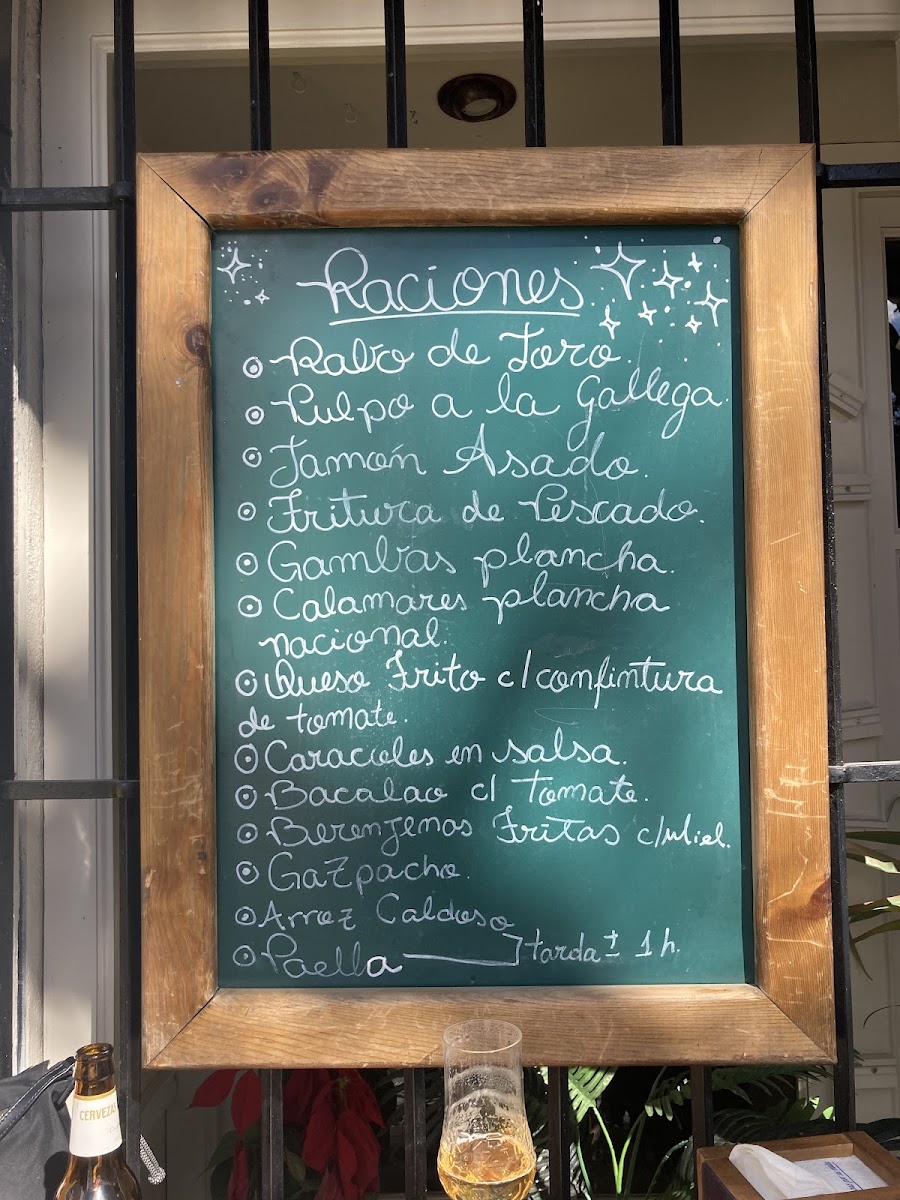 Raciones
Rabo de Toro.
Pulpo a la Gallega.
Jamón Asado.
Fritura de Pescado.
Gambas plancha.
Calamares plancha
nacional.
Queso Frito c/confintura
de tomate.
Caracoles en salsa.
Bacalao c/ Tomate.
Berenjenas Fritas c/miel.
Gazpacho.
Arroz Caldoso
Paella tarda ± 1h.
CERVEZA